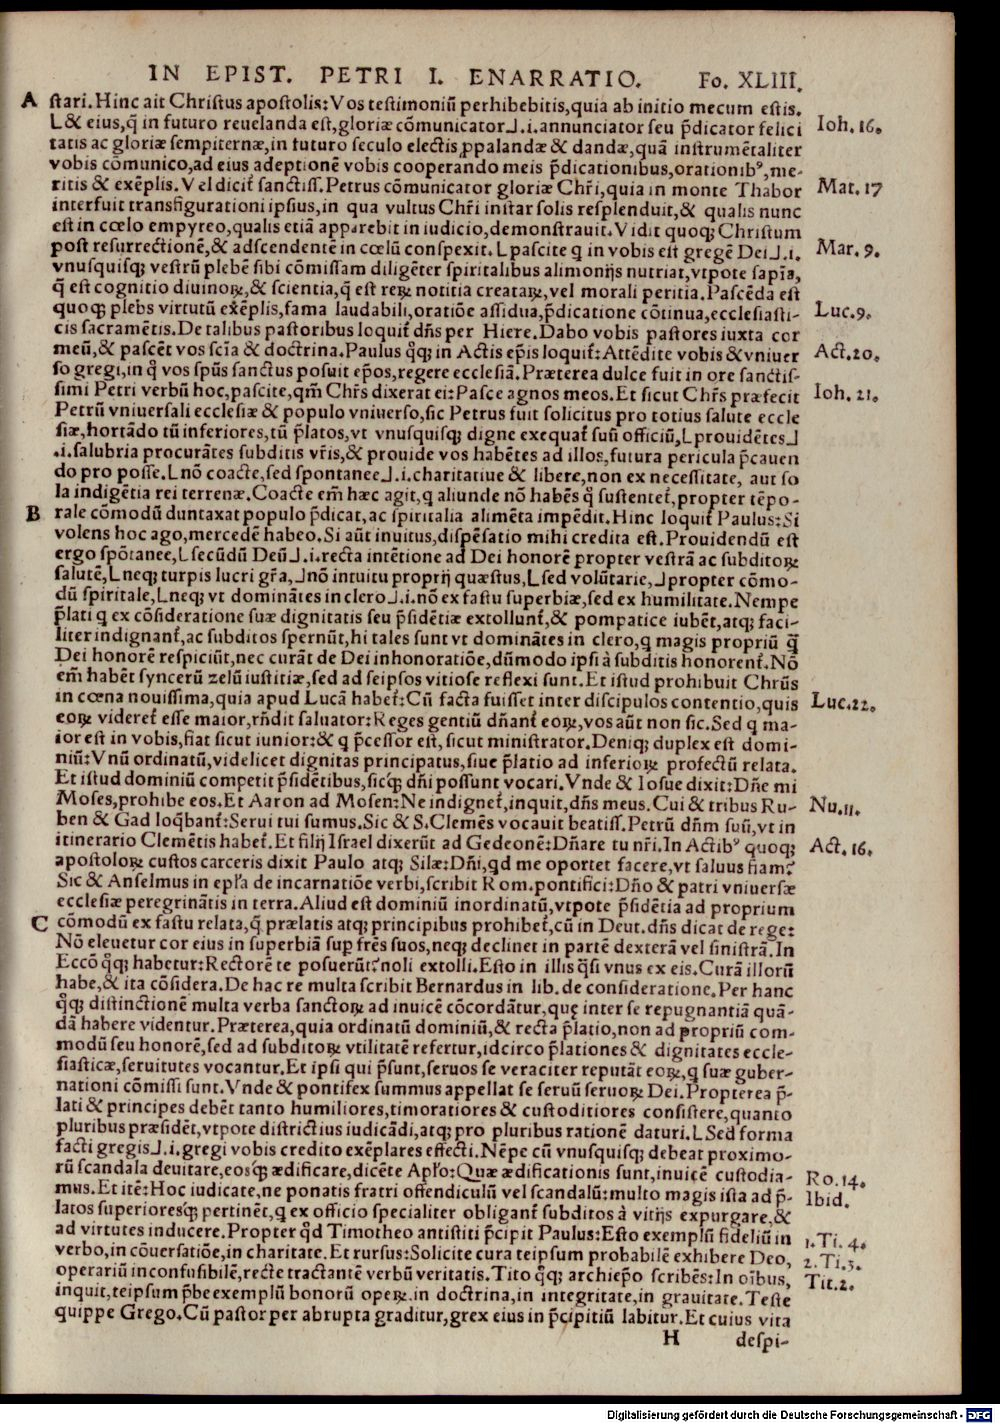 IN EPIST. PETRI I. ENARRATIO. Fo. XLIII.
A stari. Hinc ait Christus apostolis: Vos testimoniũ perhibebitis, quia ab initio mecum estis.
L & eius, q̃ in futuro reuelanda est, gloriæ cõmunicator⅃.i. annunciator seu p̃dicator felici Ioh. 16.
tatis ac gloriæ sempiternæ, in futuro seculo electis ꝓpalandæ & dandæ, quã instrumẽtaliter
vobis cõmunico, ad eius adeptionẽ vobis cooperando meis p̃dicationibus, orationibꝰ, me-
ritis & exẽplis. Vel dicit̃ sanctiss. Petrus cõmunicator gloriæ Chr̃i, quia in monte Thabor Mat. 17
interfuit transfigurationi ipsius, in qua vultus Chr̃i instar solis resplenduit, & qualis nunc
est in cœlo empyreo, qualis etiã apparebit in iudicio, demonstrauit. Vidit quoq; Christum
post resurrectionẽ, & adscendentẽ in cœlũ conspexit. L pascite q in vobis est gregẽ Dei⅃.i. Mar. 9.
vnusquisq; vestrũ plebẽ sibi cõmissam diligẽter spiritalibus alimonijs nutriat, vtpote sapĩa,
q̃ est cognitio diuinoꝝ, & scientia, q̃ est reꝝ notitia creataꝝ, vel morali peritia. Pascẽda est
quoq; plebs virtutũ exẽplis, fama laudabili, oratiõe assidua, p̃dicatione cõtinua, ecclesiasti- Luc. 9.
cis sacramẽtis. De talibus pastoribus loquit̃ dñs per Hiere. Dabo vobis pastores iuxta cor
meũ, & pascẽt vos scĩa & doctrina. Paulus q̃q; in Actis ep̃is loquit̃: Attẽdite vobis & vniuer Act. 20.
so gregi, in q̃ vos spũs sanctus posuit ep̃os, regere ecclesiã. Præterea dulce fuit in ore sanctis-
simi Petri verbũ hoc, pascite, qm̃ Chr̃s dixerat ei: Pasce agnos meos. Et sicut Chr̃s præfecit Ioh. 21.
Petrũ vniuersali ecclesiæ & populo vniuerso, sic Petrus fuit solicitus pro totius salute eccle
siæ, hortãdo tũ inferiores, tũ p̃latos, vt vnusquisq; digne exequat̃ suũ officiũ, L prouidẽtes⅃
.i. salubria procurãtes subditis vr̃is, & prouide vos habẽtes ad illos, futura pericula p̃cauen
do pro posse. L nõ coacte, sed spontanee⅃.i. charitatiue & libere, non ex necessitate, aut so
la indigẽtia rei terrenæ. Coacte em̃ hæc agit, q aliunde nõ habẽs q̃ sustentet̃, propter tẽpo-
B rale cõmodũ duntaxat populo p̃dicat, ac spiritalia alimẽta impẽdit. Hinc loquit̃ Paulus: Si
volens hoc ago, mercedẽ habeo. Si aũt inuitus, dispẽsatio mihi credita est. Prouidendũ est
ergo spõtanee, L secũdũ Deũ⅃.i. recta intẽtione ad Dei honorẽ propter vestrã ac subditoꝝ
salutẽ, L neq; turpis lucri gr̃a,⅃ nõ intuitu proprij quæstus, L sed volũtarie,⅃ propter cõmo-
dũ spiritale, L neq; vt dominãtes in clero⅃.i. nõ ex fastu superbiæ, sed ex humilitate. Nempe
p̃lati q ex cõsideratione suæ dignitatis seu p̃sidẽtiæ extollunt̃, & pompatice iubẽt, atq; faci-
liter indignant̃, ac subditos spernũt, hi tales sunt vt dominãtes in clero, q magis propriũ q̃
Dei honorẽ respiciũt, nec curãt de Dei inhonoratiõe, dũmodo ipsi à subditis honorent̃. Nõ
em̃ habẽt syncerũ zelũ iustitiæ, sed ad seipsos vitiose reflexi sunt. Et istud prohibuit Chrũs
in cœna nouissima, quia apud Lucã habet̃: Cũ facta fuisset inter discipulos contentio, quis Luc. 22.
eoꝝ videret̃ esse maior, rñdit saluator: Reges gentiũ dñant̃ eoꝝ, vos aũt non sic. Sed q ma-
ior est in vobis, fiat sicut iunior: & q p̃cessor est, sicut ministrator. Deniq; duplex est domi-
niũ: Vnũ ordinatũ, videlicet dignitas principatus, siue p̃latio ad inferioꝝ profectũ relata.
Et istud dominiũ competit p̃sidẽtibus, sicq́; dñi possunt vocari. Vnde & Iosue dixit: Dñe mi
Moses, prohibe eos. Et Aaron ad Mosen: Ne indignet̃, inquit, dñs meus. Cui & tribus Ru- Nu. 11.
ben & Gad loq̃bant̃: Serui tui sumus. Sic & S. Clemẽs vocauit beatiss. Petrũ dñm suũ, vt in
itinerario Clemẽtis habet̃. Et filij Israel dixerũt ad Gedeonẽ: Dñare tu nr̃i. In Actibꝰ quoq; Act. 16.
apostoloꝝ custos carceris dixit Paulo atq; Silæ: Dñi, qd me oportet facere, vt saluus fiam?
Sic & Anselmus in epl̃a de incarnatiõe verbi, scribit Rom. pontifici: Dño & patri vniuersæ
ecclesiæ peregrinãtis in terra. Aliud est dominiũ inordinatũ, vtpote p̃sidẽtia ad proprium
C cõmodũ ex fastu relata, q̃ prælatis atq; principibus prohibet̃, cũ in Deut. dñs dicat de rege:
Nõ eleuetur cor eius in superbiã sup fr̃es suos, neq; declinet in partẽ dexterã vel sinistrã. In
Eccõ q̃q; habetur: Rectorẽ te posuerũt? noli extolli. Esto in illis q̃si vnus ex eis. Curã illorũ
habe, & ita cõsidera. De hac re multa scribit Bernardus in lib. de consideratione. Per hanc
q̃q; distinctionẽ multa verba sanctoꝝ ad inuicẽ cõcordãtur, quę inter se repugnantiã quã-
dã habere videntur. Præterea, quia ordinatũ dominiũ, & recta p̃latio, non ad propriũ com-
modũ seu honorẽ, sed ad subditoꝝ vtilitatẽ refertur, idcirco p̃lationes & dignitates eccle-
siasticæ, seruitutes vocantur. Et ipsi qui p̃sunt, seruos se veraciter reputãt eoꝝ, q suæ guber-
nationi cõmissi sunt. Vnde & pontifex summus appellat se seruũ seruoꝝ Dei. Propterea p̃-
lati & principes debẽt tanto humiliores, timoratiores & custoditiores consistere, quanto
pluribus præsidẽt, vtpote districtius iudicãdi, atq; pro pluribus rationẽ daturi. L Sed forma
facti gregis⅃.i. gregi vobis credito exẽplares effecti. Nẽpe cũ vnusquisq; debeat proximo-
rũ scandala deuitare, eosq́; ædificare, dicẽte Apl̃o: Quæ ædificationis sunt, inuicẽ custodia- Ro. 14.
mus. Et itẽ: Hoc iudicate, ne ponatis fratri offendiculũ vel scandalũ: multo magis ista ad p̃- Ibid.
latos superioresq́; pertinẽt, q ex officio specialiter obligant̃ subditos à vitijs expurgare, &
ad virtutes inducere. Propter q̃d Timotheo antistiti p̃cipit Paulus: Esto exemplũ fideliũ in 1. Ti. 4.
verbo, in cõuersatiõe, in charitate. Et rursus: Solicite cura teipsum probabilẽ exhibere Deo, 2. Ti. 3.
operariũ inconfusibilẽ, recte tractantẽ verbũ veritatis. Tito q̃q; archiep̃o scribẽs: In oĩbus, Tit. 2.
inquit, teipsum p̃be exemplũ bonorũ opeꝝ. in doctrina, in integritate, in grauitate. Teste
quippe Grego. Cũ pastor per abrupta graditur, grex eius in p̃cipitiũ labitur. Et cuius vita
H despi-
Digitalisierung gefördert durch die Deutsche Forschungsgemeinschaft - DFG